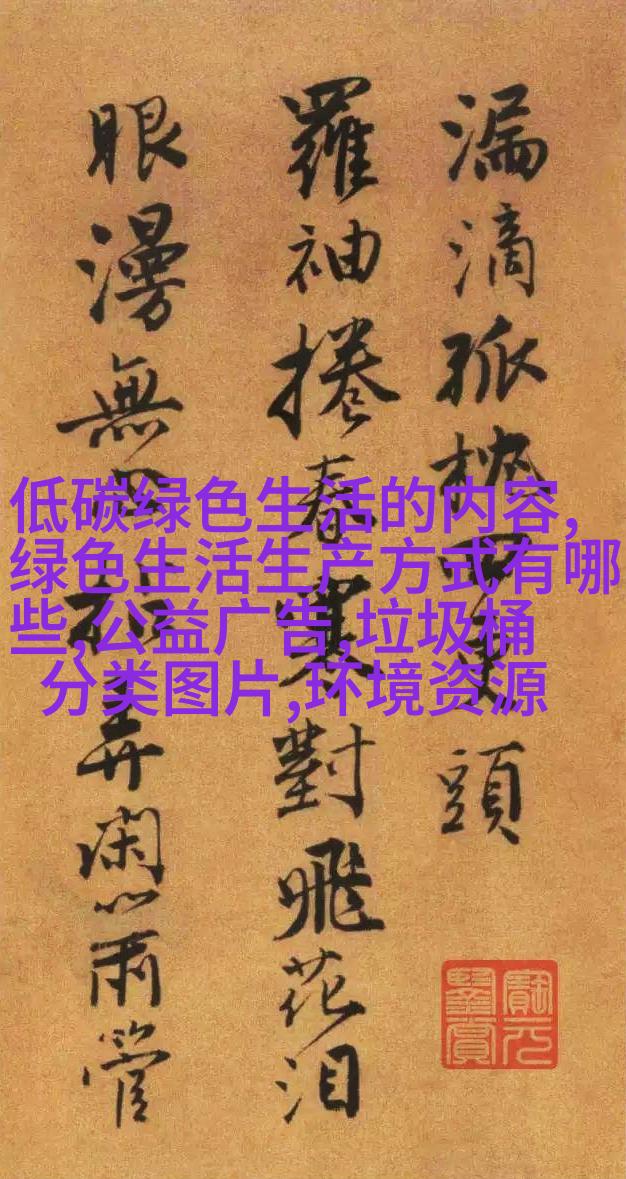 漏滴孤頭
羅袖捲春寒對飛花泪
眼漫無弄閑管
低碳绿色生活的内容,
绿色生活生产方式有哪
些,公益广告,垃圾桶
分类图片,环境资源